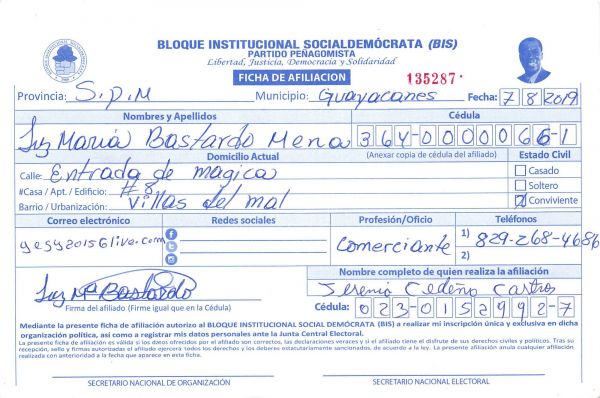 BLOQUE INSTITUCIONAL SOCIALDEMÓCRATA (BIS)
PARTIDO PEÑAGOMISTA
Libertad, Justicia, Democracia y Solidaridad
FICHA DE AFILIACION
135287
Provincia: S.P.M Municipio: Guayacanes Fecha: 7/8/2019
Nombres y Apellidos Cédula
Luz María Bastardo Mena 364-0000066-1
Domicilio Actual (Anexar copia de cédula del afiliado) Estado Civil
Calle: Entrada de magica Casado
#Casa / Apt. / Edificio: #8 Soltero
Barrio / Urbanización: Villas del mal Conviviente
Correo electrónico Redes sociales Profesión/Oficio Teléfonos
yesy2015@live.com Comerciante 1) 829-268-4686
2)
Nombre completo de quien realiza la afiliación
Luz Mª Bastardo Jeremio Cedeño Castros
Firma del afiliado (Firme igual que en la Cédula) Cédula: 023-0152992-7
Mediante la presente ficha de afiliación autorizo al BLOQUE INSTITUCIONAL SOCIAL DEMÓCRATA (BIS) a realizar mi inscripción única y exclusiva en dicha
organización política, así como a registrar mis datos personales ante la Junta Central Electoral.
La presente ficha de afiliación es válida si los datos ofrecidos por el afiliado son correctos, las declaraciones veraces y si el afiliado tiene el disfrute de sus derechos civiles y políticos. Tras su
recepción, sello y firmas autorizadas el afiliado ejercerá todos los derechos y los deberes estatutariamente sancionados, de acuerdo a la ley. La presente afiliación anula cualquier afiliación
realizada con anterioridad a la fecha que aparece en esta ficha.
SECRETARIO NACIONAL DE ORGANIZACIÓN SECRETARIO NACIONAL ELECTORAL